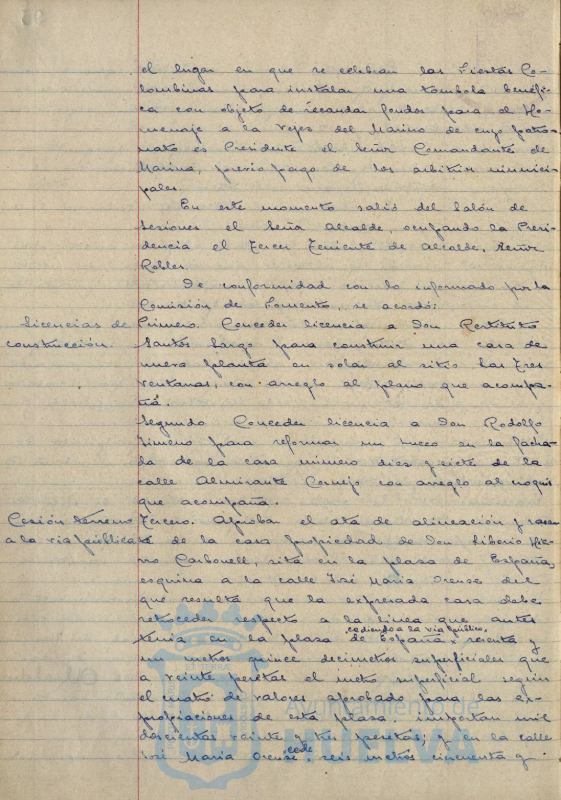 el lugar en que se celebran las Fiestas Co-
lombinas para instalar una tombola benéfi-
ca con objeto de recaudar fondos para el Ho-
menaje a la Vejez del Marino de cuyo patro-
nato es Presidente el Señor Comandante de
Marina, previo pago de los arbitrios munici-
pales.
En este momento salió del Salón de
Sesiones el Señor Alcalde, ocupando la Presi-
dencia el Tercer Teniente de Alcalde, Señor
Robles.
De conformidad con lo informado por la
Comisión de Fomento, se acordó:
Licencias de construcción.
Primero. Conceder licencia a Don Restituto
Santos Largo para construir una casa de
nueva planta en solar al sitio Las Tres
Ventanas, con arreglo al plano que acompa-
ña.
Segundo. Conceder licencia a Don Rodolfo
Jimeno para reformar un hueco en la facha-
da de la casa número diez y siete de la
calle Almirante Cornejo con arreglo al croquis
que acompaña.
Cesión terreno a la via pública
Tercero. Aprobar el acta de alineación y rasan
te de la casa propiedad de Don Liborio
Carbonell, sita en la plaza de España,
esquina a la calle José María Orense del
que resulta que la expresada casa debe
retroceder respecto a la linea que antes
cediendo a la via pública,
tenia en la plaza de España, sesenta y
un metros quince decimetros superficiales que
a veinte pesetas el metro superficial según
el cuadro de valores aprobado para las ex-
propiaciones de esta plaza, importan mil
doscientas veinte y tres pesetas; y en la calle
José María Orense, cede seis metros cincuenta y
Ayuntamiento de
HUELVA